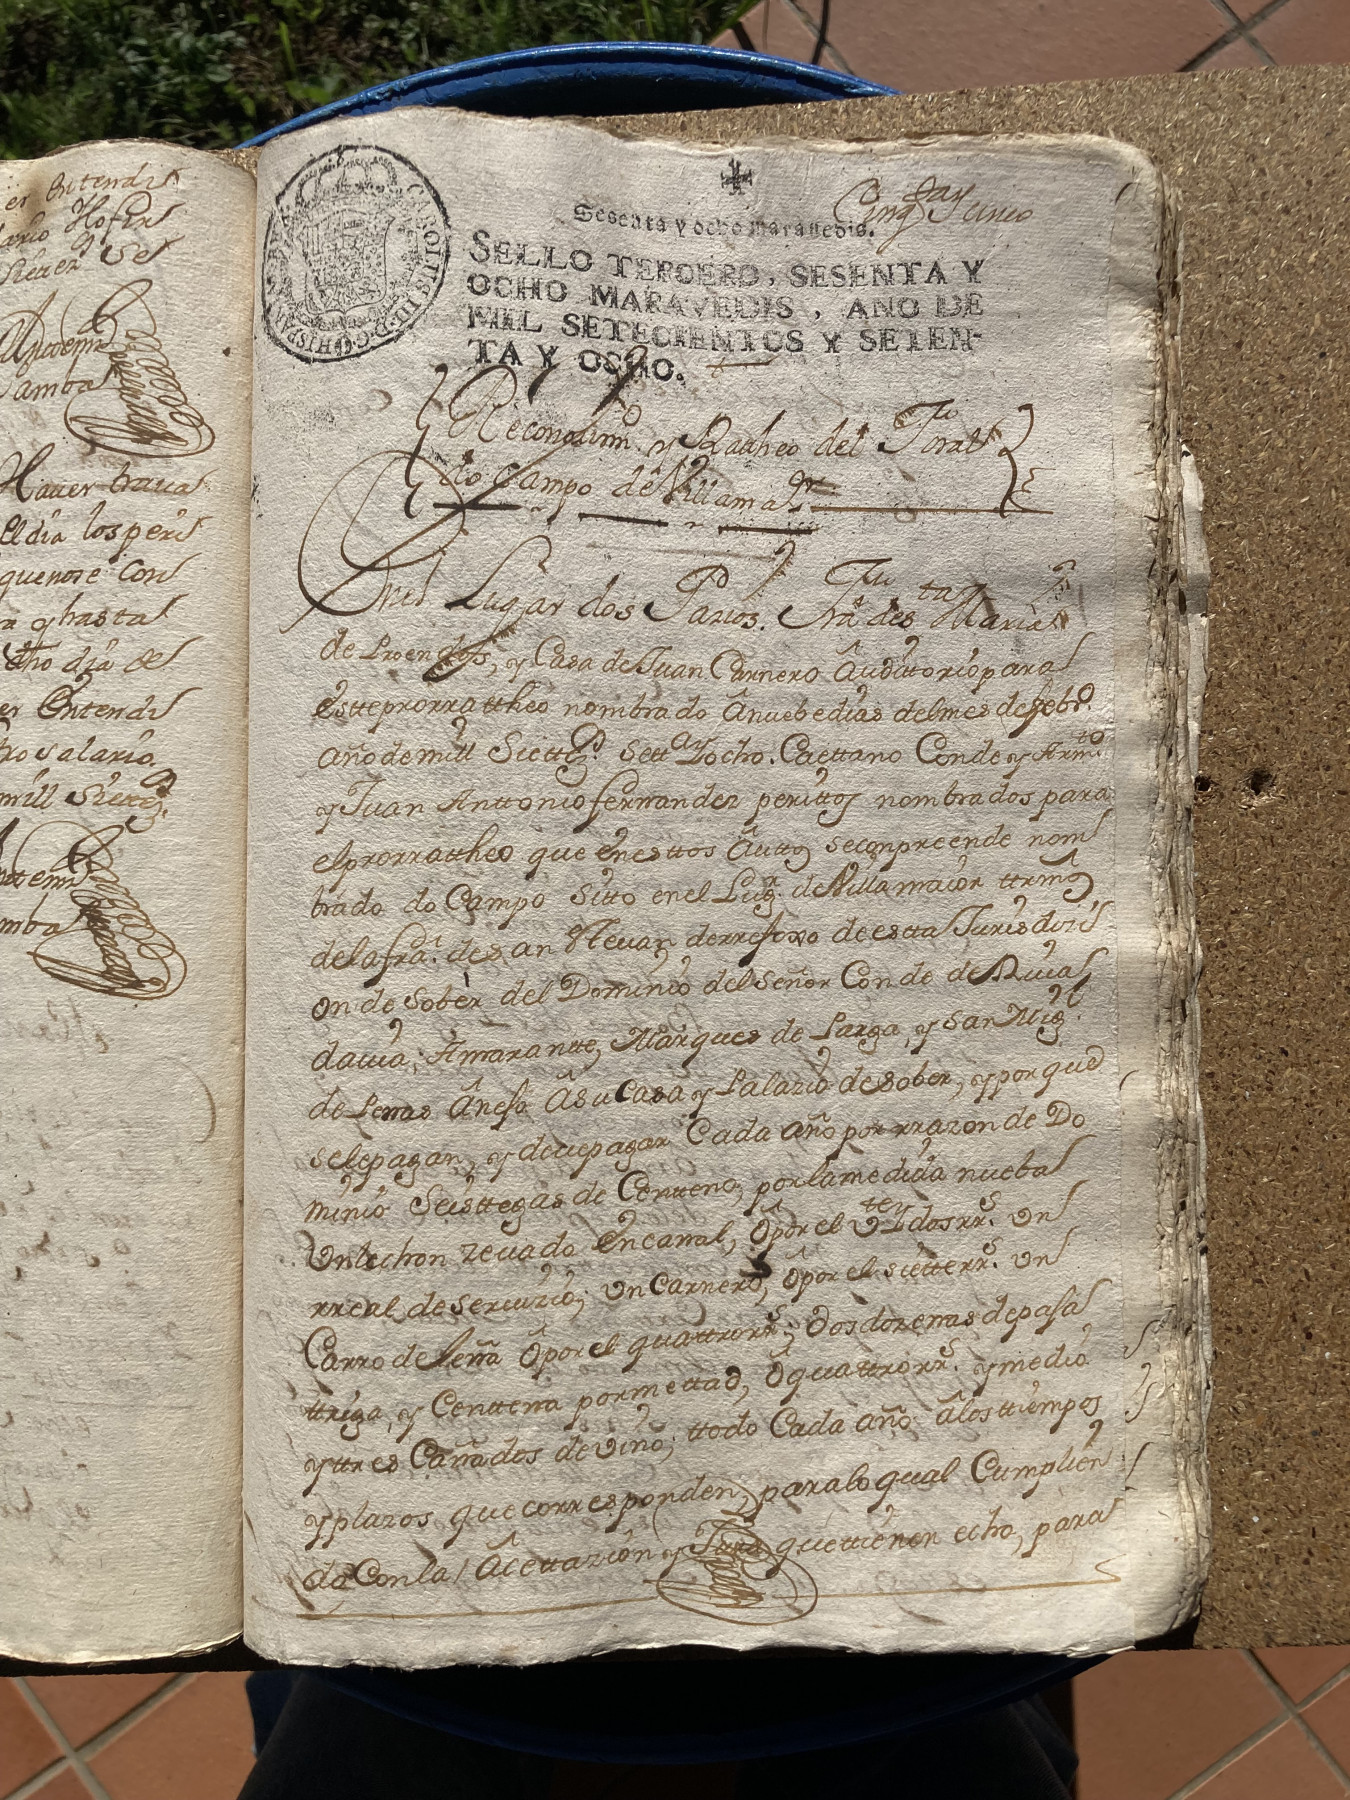 er entendi
Siere.s Se
Hauer traua
el dia los peri
quenose Con
a y hasta
dho dia de
er entendi
ro salario.
mill Siette
CAROLUS III D. G. HISPAN. REX
Cinq.ta y cinco
Sesenta y ocho marauedis.
SELLO TERCERO, SESENTA Y
OCHO MARAVEDIS, AÑO DE
MIL SETECIENTOS Y SETEN-
TA Y OCHO.
Reconozim.to y Ratheo del Foral
do Campo de Villama.or
En el Lugar dos Pacios. Fra. de S.ta Maria
de Proendos, y Casa de Juan Carnero Âudittorio para
estte prorrattheo nombrado â nuebe dias del mes de febr.o
año de mill Siettz.s Sett.ay ocho. Caettano Conde y Arm.to
y Juan Anttonio fernandez perittos nombrados para
el prorrattheo que en esttos Âuttos se conpreende nom
brado do Campo sitto en el Lug.r de Villamaior ttrmos
de la fra. de san Steuan de rrefoxo de estta Jurisdizi
on de Sober del Dominio del Señor Conde de Riua
dauia, Amarantte, Marques de Parga, y San Mig.l
de Penas Ânesa Â su Casa y Palazio de Sober, y por que
se le pagan, y deue pagar Cada año por rrazon de Do
minio Seis ttegas de Centteno, por la medida nueba
Un lechon zeuado en canal, ô por el v.te y dos rr.s Un
rreal de seruizio; Un Carnero, ô por el siette rr.s Un
Carro de leña ô por el quattro rr.s; Dos dozenas de pasa
ttriga, y Centtena por mettad, ô quattro rr.s y medio
y ttres Cañados de vino; ttodo Cada año â los ttiempos
y plazos que corresponden, para lo qual Cumplien
do Con la Âcettazion y Jura que ttienen echo, para